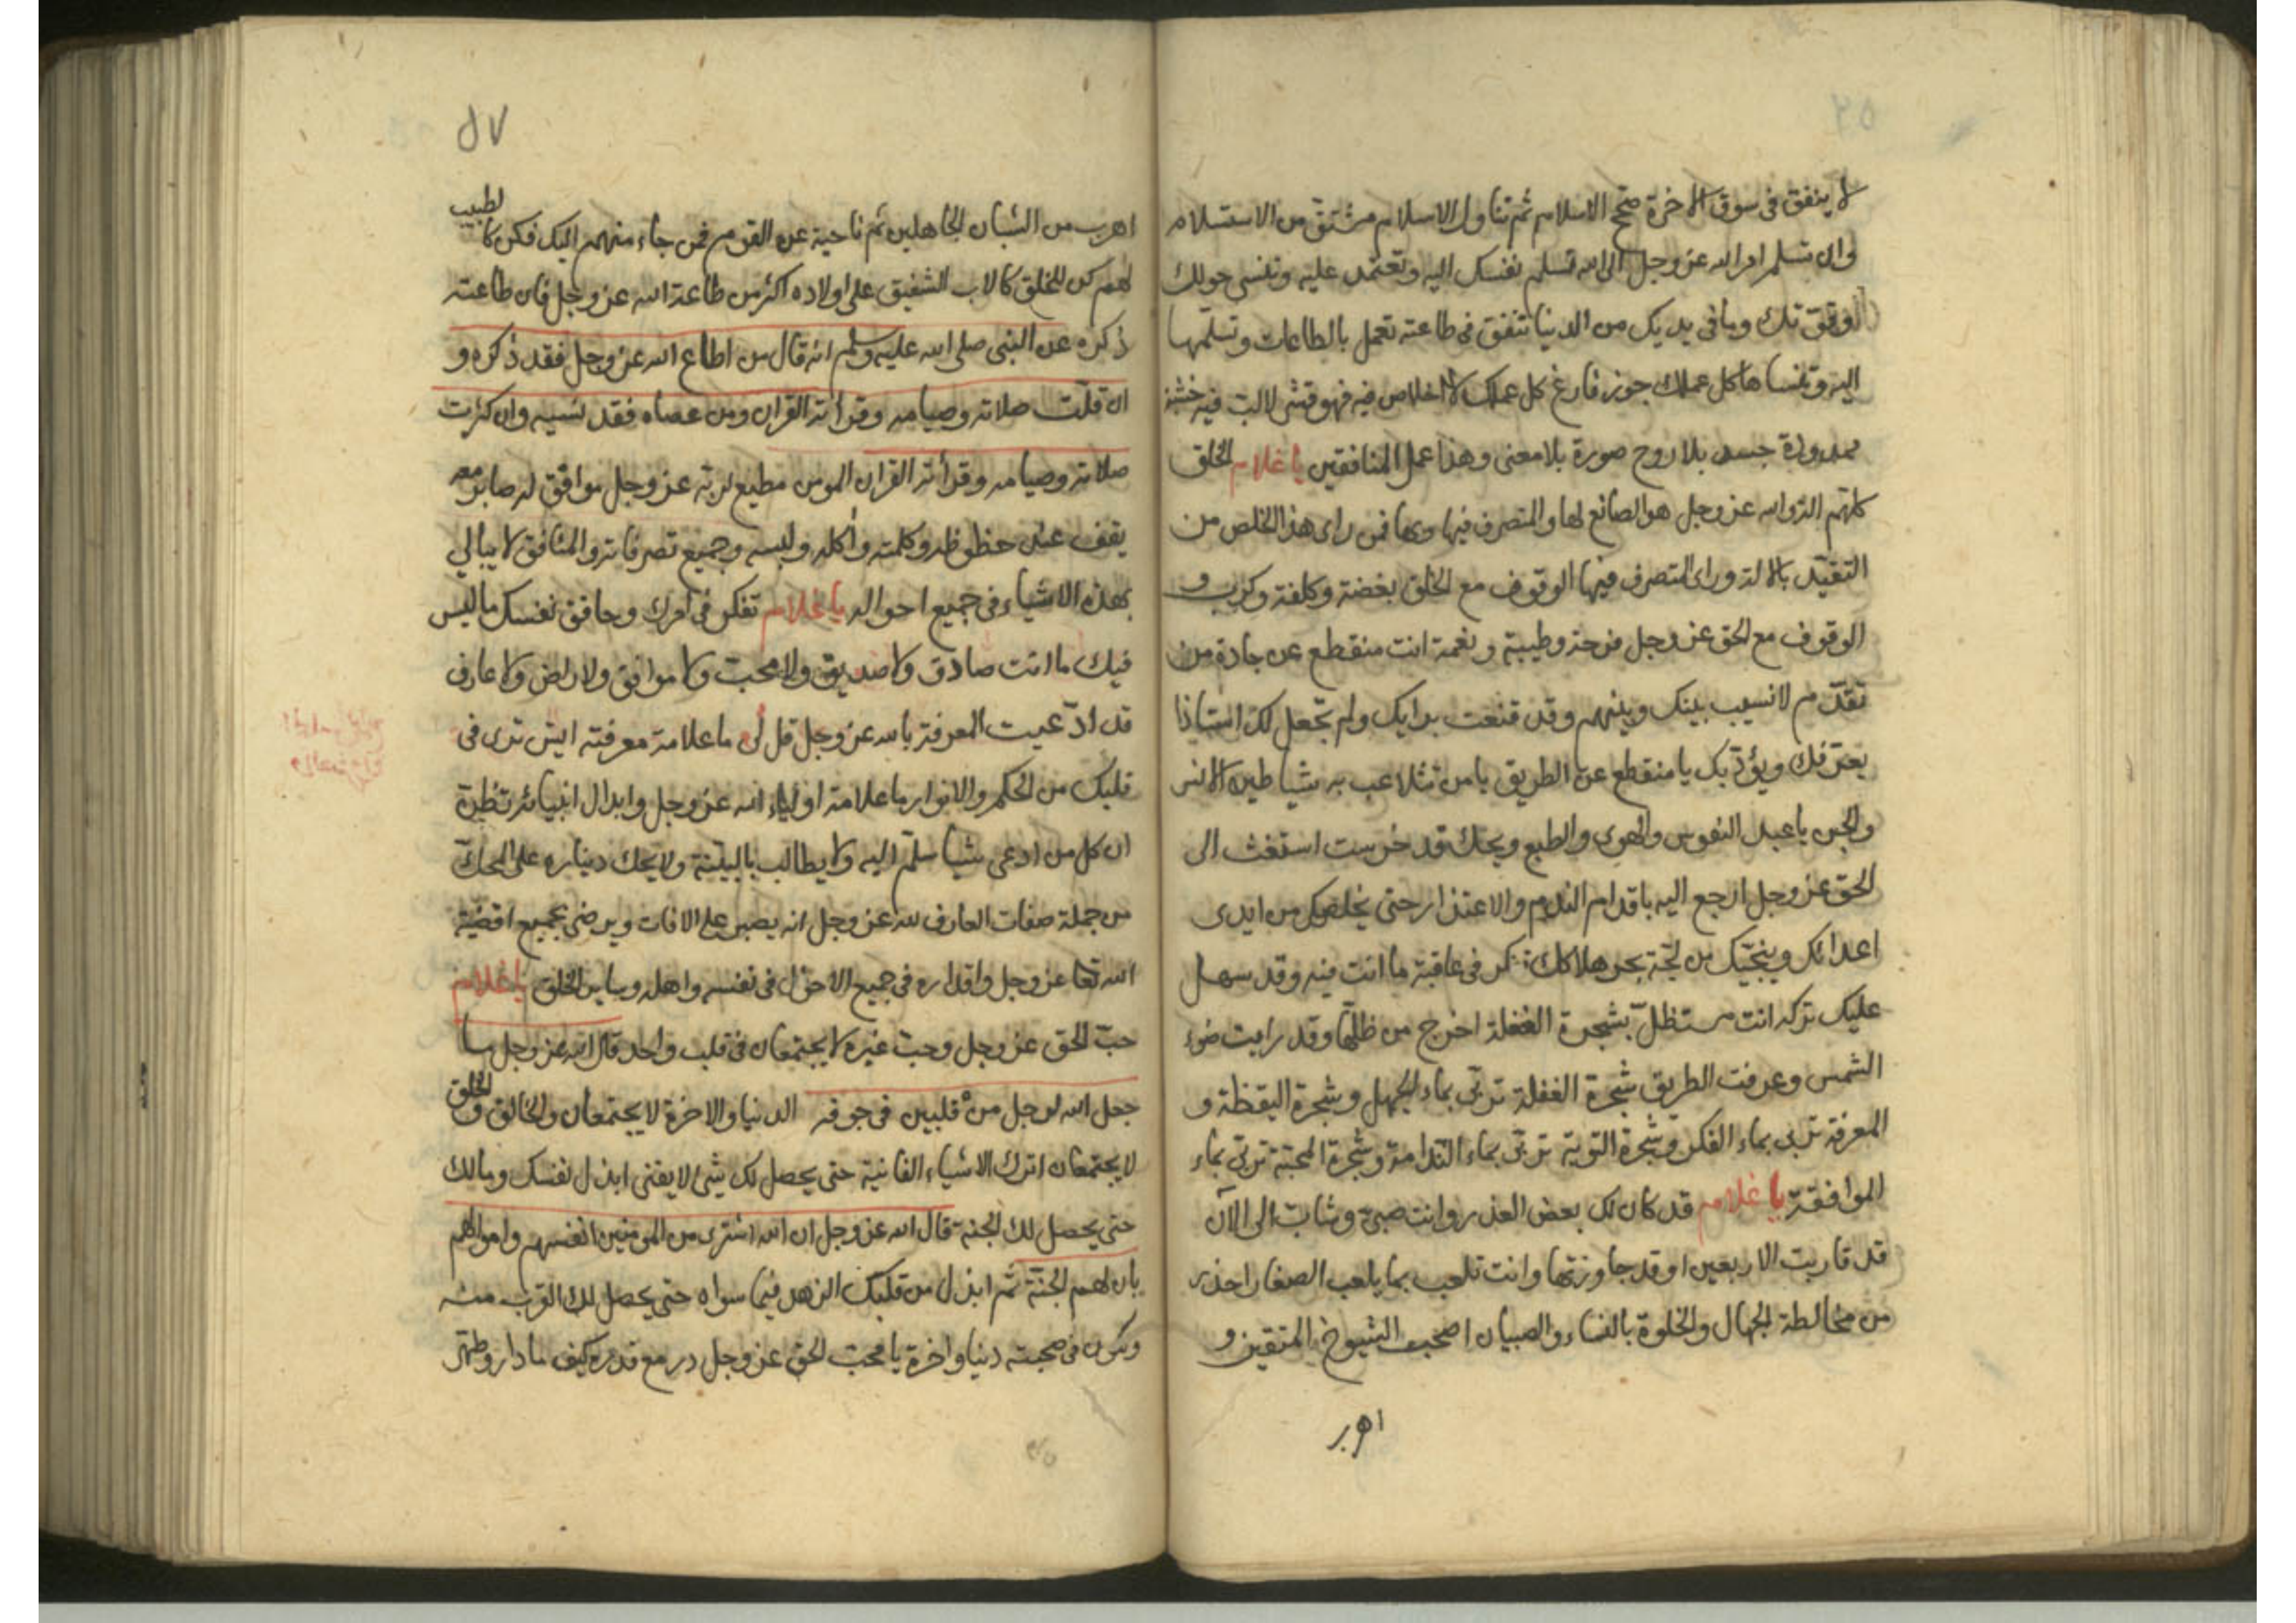 لا ينفق فى سوق الاخرة صحح الاسلام ثم تناول الاسلام مشتق من الاستسلام
وان تسلم امر الله عز وجل الى الله تسلم نفسك اليه وتعتمد عليه وتنسى حولك
وقوتك وما فى يديك من الدنيا تنفق فى طاعته تعمل بالطاعات وتسلمها
اليه وتنساها كل عملك جوز فارغ كل عملك لا اخلاص فيه فهو قشر لا لب فيه خشبة
ممدودة جسد بلا روح صورة بلا معنى وهذا عمل المنافقين يا غلام الخلق
كلهم الة والله عز وجل هو الصانع لها والمتصرف فيها وبها فمن راى هذا تخلص من
التقيد بالالة وراى المتصرف فيها الوقوف مع الخلق بغضة وكلفة وكرب و
الوقوف مع الحق عز وجل فرحة وطيبة ونعمة انت منقطع عن جادة من
تقدم لا نسب بينك وبينهم وقد قنعت برايك ولم تجعل لك استاذا
يعرفك ويؤدبك يا منقطع عن الطريق يا من تتلاعب به شياطين الانس
والجن يا عبد النفوس والهوى والطبع ويحك قد خرست استغث الى
الحق عز وجل ارجع اليه باقدام الندم والاعتذار حتى يخلصك من ايدى
اعدائك وينجيك من لجة بحر هلاكك فكر فى عاقبة ما انت فيه وقد سهل
عليك تركه انت مستظل بشجرة الغفلة اخرج من ظلها وقد رايت ضوء
الشمس وعرفت الطريق شجرة الغفلة تربى بماء الجهل وشجرة اليقظة و
المعرفة تربى بماء الفكر وشجرة التوبة تربى بماء الندامة وشجرة المحبة تربى بماء
الموافقة يا غلام قد كان لك بعض العذر وانت صبى وشاب الى الآن
قد قاربت الاربعين او قد جاوزتها وانت تلعب بما يلعب الصغار احذر
من مخالطة الجهال والخلوة بالنساء والصبيان اصحب الشيوخ المتقين و
اهرب
٥٧
اهرب من الشبان الجاهلين ثم ناحية عن القوم فمن جاء منهم اليك فكن كالطبيب
لهم كن للخلق كالاب الشفيق على اولاده اكثر من طاعة الله عز وجل فان طاعته
ذكره عن النبى صلى الله عليه وسلم انه قال من اطاع الله عز وجل فقد ذكره و
ان قلت صلاته وصيامه وقرأته القران ومن عصاه فقد نسيه وان كثرت
صلاته وصيامه وقرأته القران المومن مطيع لربه عز وجل موافق له صابر معه
يقف عند حظوظه وكلمته واكله ولبسه وجميع تصرفاته والمنافق لا يبالى
بهذه الاشياء فى جميع احواله يا غلام تفكر فى امرك وحاقق نفسك ما ليس
فيك ما انت صادق ولا صديق ولا محب ولا موافق ولا راض ولا عارف
قد ادعيت المعرفة بالله عز وجل قل لى ما علامة معرفته ايش ترى فى
قلبك من الحكم والانوار ما علامة اولياء الله عز وجل وابدال انبيائه تظن
ان كل من ادعى شيا سلم اليه ولا يطالب بالبينة ولا يحك ديناره على المحك
من جملة صفات العارف لله عز وجل انه يصبر على الافات ويرضى بجميع اقضية
الله تعا عز وجل واقداره فى جميع الاحوال فى نفسه واهله وساير الخلق يا غلام
حب الحق عز وجل وحب غيره لا يجتمعان فى قلب واحد قال الله عز وجل ما
جعل الله لرجل من قلبين فى جوفه الدنيا والاخرة لا يجتمعان والخالق والخلق
لا يجتمعان اترك الاشياء الفانية حتى يحصل لك شئ لا يفنى ابذل نفسك ومالك
حتى يحصل لك الجنة قال الله عز وجل ان الله اشترى من المومنين انفسهم واموالهم
بان لهم الجنة ثم ابذل من قلبك الزهد فيما سواه حتى يحصل لك القرب منه
وتكون فى صحبته دنيا واخرة يا محب الحق عز وجل در مع قدره كيف ما دار وطهر